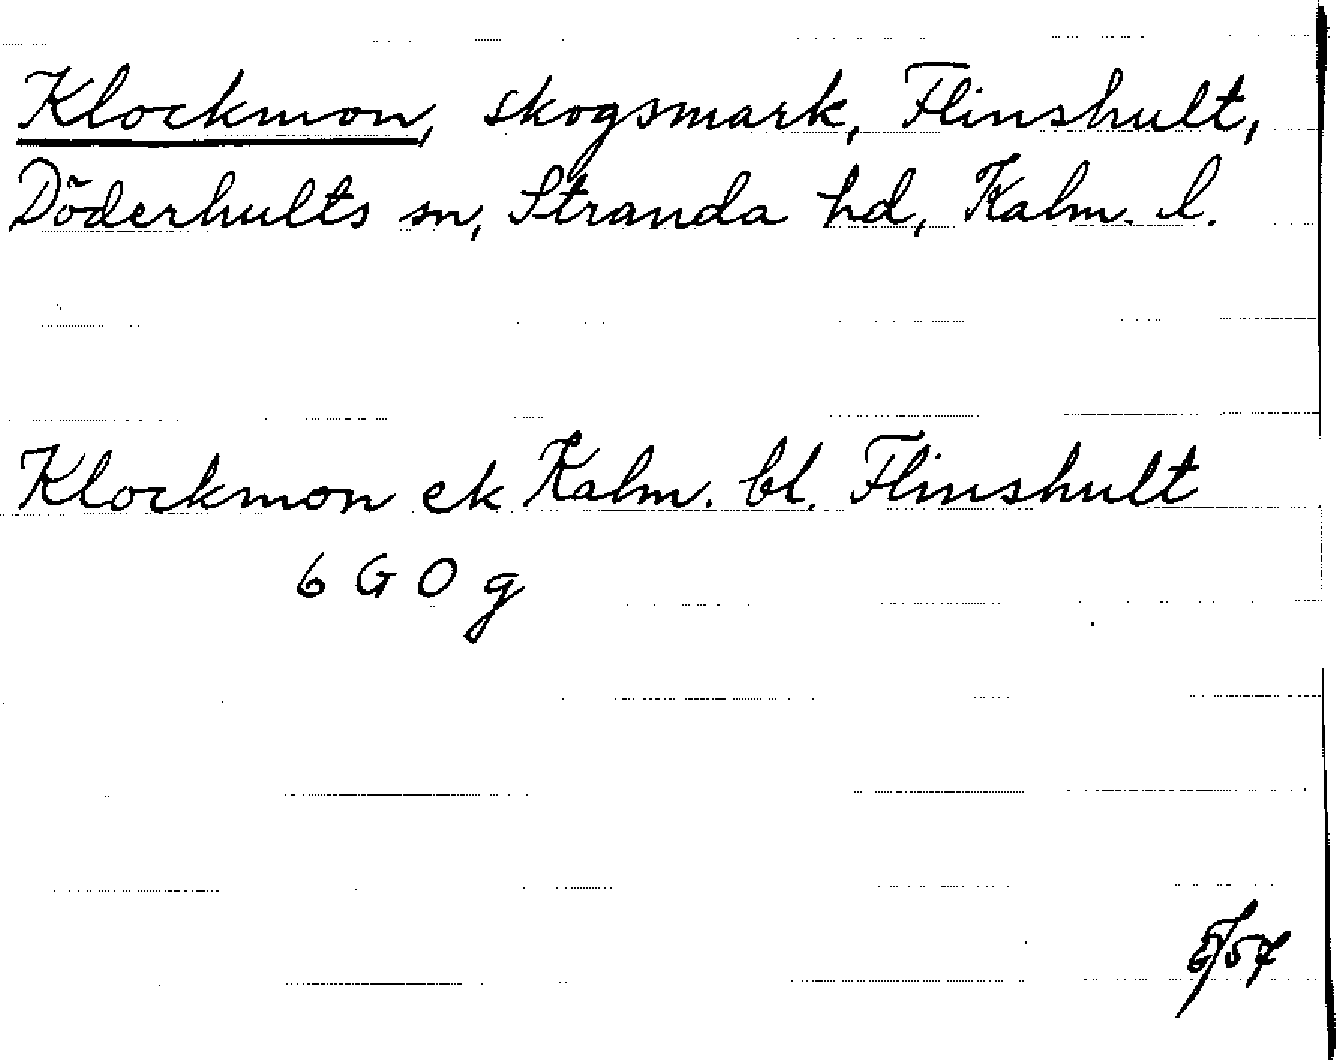 Klockmon, skogsmark, Flinshult,
Döderhults sn, Stranda hd, Kalm. l.
Klockmon ek Kalm. bl. Flinshult
6 G O g
5/54